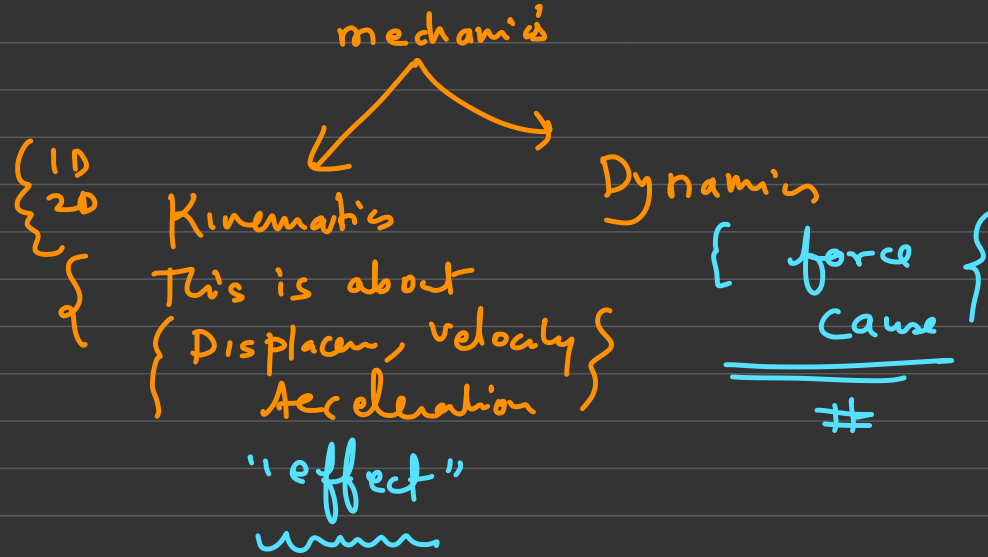 mechanics
1D
2D
Kinematics
This is about
Displacem, velocity
Acceleration
"effect"
Dynamics
force
cause
#